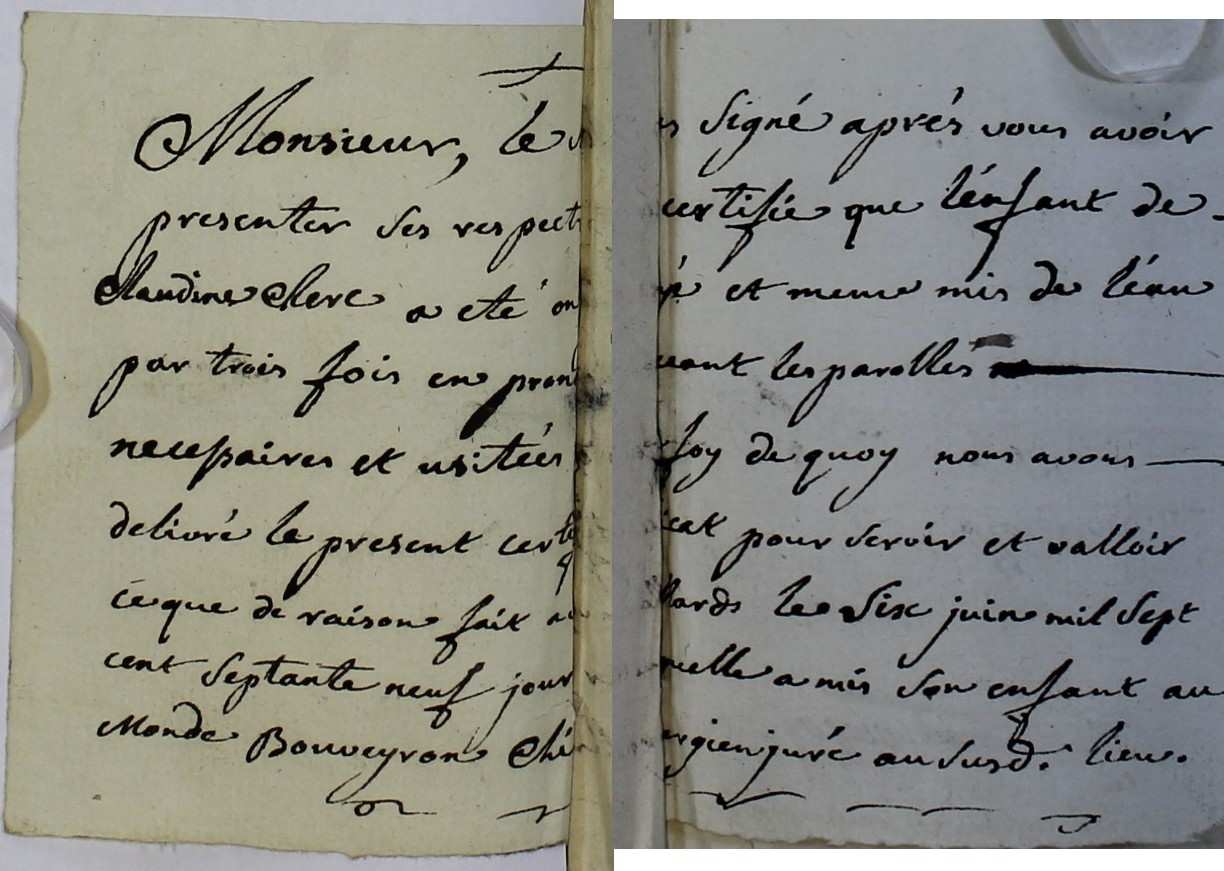 Monsieur, lé signé aprés vous avoir
presenter ses respect certifie que l'énfant de
Claudine Clerc a eté et meme mis de l'éau
par trois fois en les parollés
necessaires et usitées foy de quoy nous avons
delivré le present certificat pour servir et valloir
ce que de raison fait le six juin mil sept
cent septante neuf jour a mis son enfant au
Monde Bouveyron Chirurgien juré au susd. lieu.